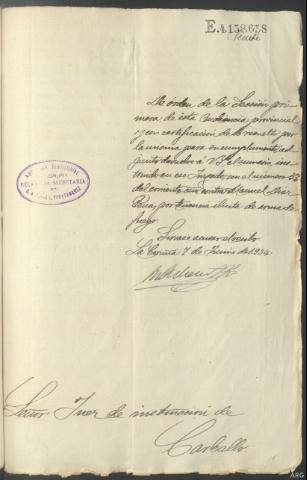 E.4.158.658
De órden de la Sección pri-
mera de ésta Audiencia provincial
y con certificación de lo resuelto por
la misma para su cumplimiento, ad-
junto devuelvo á V.S. el sumario ins-
truido en ese Juzgado con el número 52
del corriente año contra Manuel
por tenencia ilícita de arma de
fuego.
Sírvase acusar el recibo.
La Coruña 7 de Junio de 1934.
AUDIENCIA PROVINCIAL
CORUÑA
SECRETARÍA
DE
Señor Juez de instrucción de
Carballo.
ARG